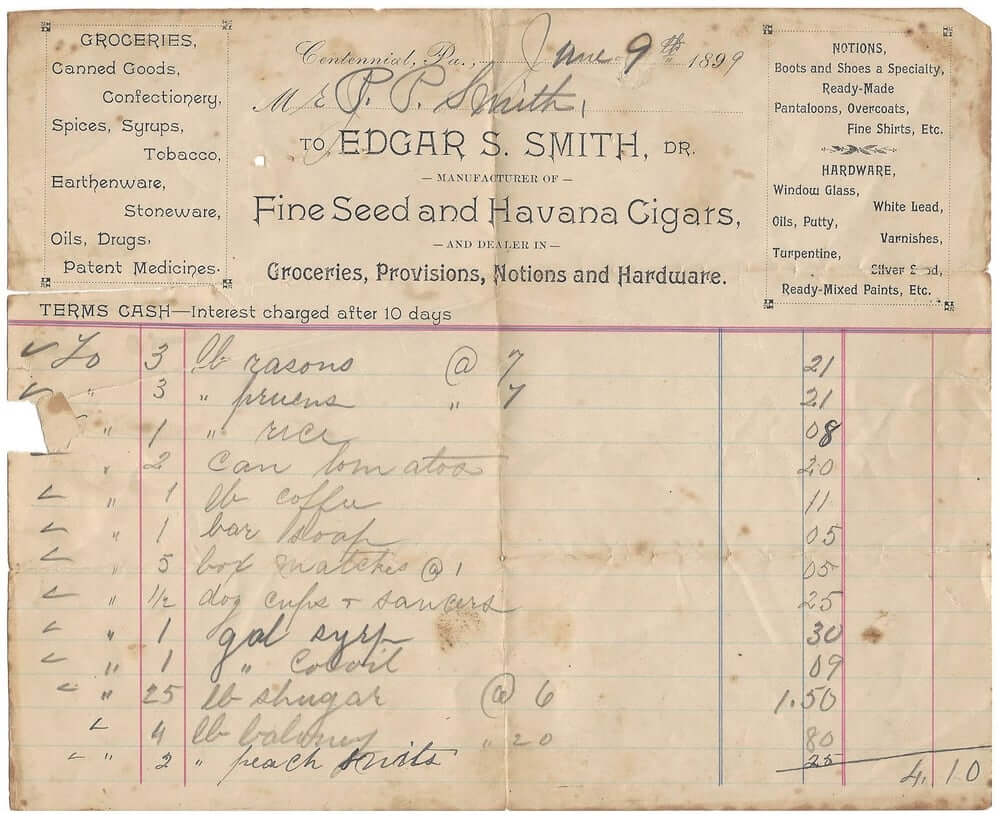 GROCERIES,
Canned Goods,
Confectionery,
Spices, Syrups,
Tobacco,
Earthenware,
Stoneware,
Oils, Drugs,
Patent Medicines.
Centennial, Pa., June 9th 1899
Mr P. P. Smith,
TO EDGAR S. SMITH, DR.
— MANUFACTURER OF —
Fine Seed and Havana Cigars,
— AND DEALER IN —
Groceries, Provisions, Notions and Hardware.
NOTIONS,
Boots and Shoes a Specialty,
Ready-Made
Pantaloons, Overcoats,
Fine Shirts, Etc.
HARDWARE,
Window Glass,
White Lead,
Oils, Putty,
Varnishes,
Turpentine,
Silver
Ready-Mixed Paints, Etc.
TERMS CASH—Interest charged after 10 days
✓ To 3 lb rasons @ 7 21
✓ " 3 " pruens " 7 21
" 1 " rice 08
" 2 can tom atos 20
✓ " 1 lb coffee 11
✓ " 1 bar soap 05
✓ " 5 box matches @ 1 05
✓ " 1/2 dog cups + saucers 25
✓ " 1 gal syrp 30
✓ " 1 " Cocoil 09
✓ " 25 lb shugar @ 6 1.50
✓ 4 lb baloney " 20 80
✓ " 2 " peach 25
4.10